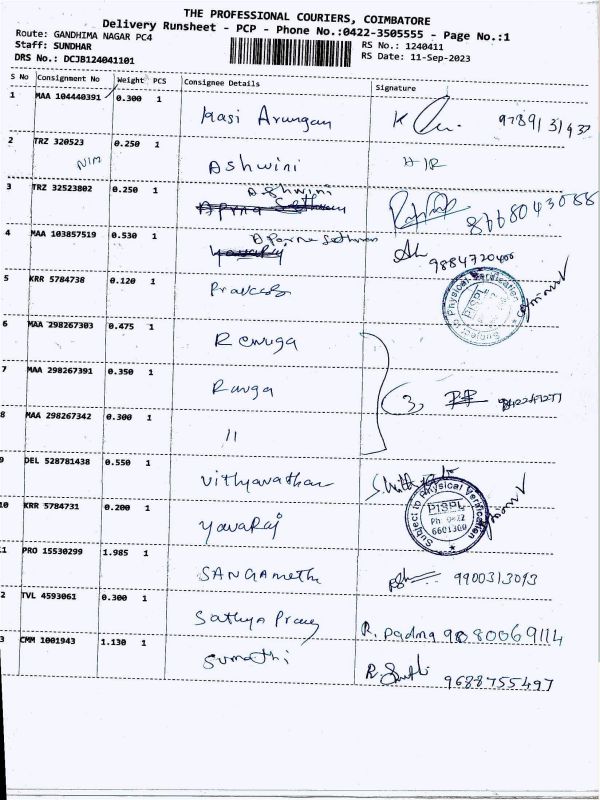 THE PROFESSIONAL COURIERS, COIMBATORE
Delivery Runsheet - PCP - Phone No.:0422-3505555 - Page No.:1
Route: GANDHIMA NAGAR PC4
RS No.: 1240411
Staff: SUNDHAR
RS Date: 11-Sep-2023
DRS No.: DCJB124041101
S No Consignment No Weight PCS Consignee Details Signature
1 MAA 104440391 0.300 1 Kasi Arungan
2 TRZ 320523 0.250 1 Ashwini
3 TRZ 32523802 0.250 1 Ashwini 8668043088
4 MAA 103857519 0.530 1 Aparna Sethuram 9884720400
5 KRR 5784738 0.120 1 Prakash
Subject to Physical Verification
PISPL
6 MAA 298267303 0.475 1 Renuga
7 MAA 298267391 0.350 1 Ranga 3
8 MAA 298267342 0.300 1 11
9 DEL 528781438 0.550 1 Vithyanathan
10 KRR 5784731 0.200 1 Yavaraj
Subject to Physical Verification
PISPL
Ph: 0422
6601300
1 PRO 15530299 1.985 1 SANGAmeth 9900313093
2 TVL 4593061 0.300 1 Sathya Priya R. Padma 9080069114
3 CMM 1001943 1.130 1 Sumathi 9688755497